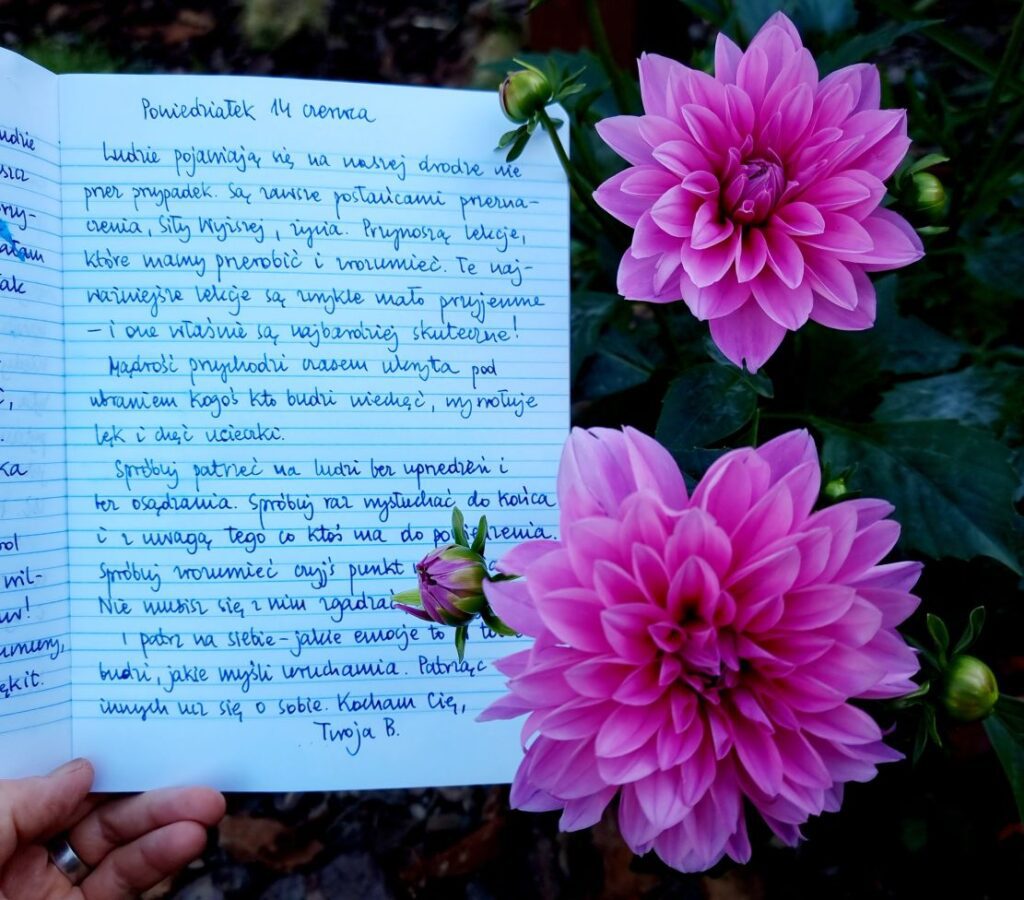 udzie
ory-
ałam
ak
ka
rol
wil-
ękit.
Poniedziałek 14 czerwca
Ludzie pojawiają się na naszej drodze nie
przez przypadek. Są zawsze posłańcami przezna-
czenia, Siły Wyższej, życia. Przynoszą lekcje,
które mamy przerobić i zrozumieć. Te naj-
ważniejsze lekcje są zwykle mało przyjemne
– i one właśnie są najbardziej skuteczne!
Mądrość przychodzi czasem ukryta pod
ubraniem kogoś kto budzi niechęć, wywołuje
lęk i chęć ucieczki.
Spróbuj patrzeć na ludzi bez uprzedzeń i
bez osądzania. Spróbuj raz wysłuchać do końca
i z uwagą tego co ktoś ma do powiedzenia.
Spróbuj zrozumieć czyjś punkt
Nie musisz się z nim zgadzać
I patrz na siebie – jakie emocje to
budzi, jakie myśli uruchamia. Patrząc
innych ucz się o sobie. Kocham Cię,
Twoja B.